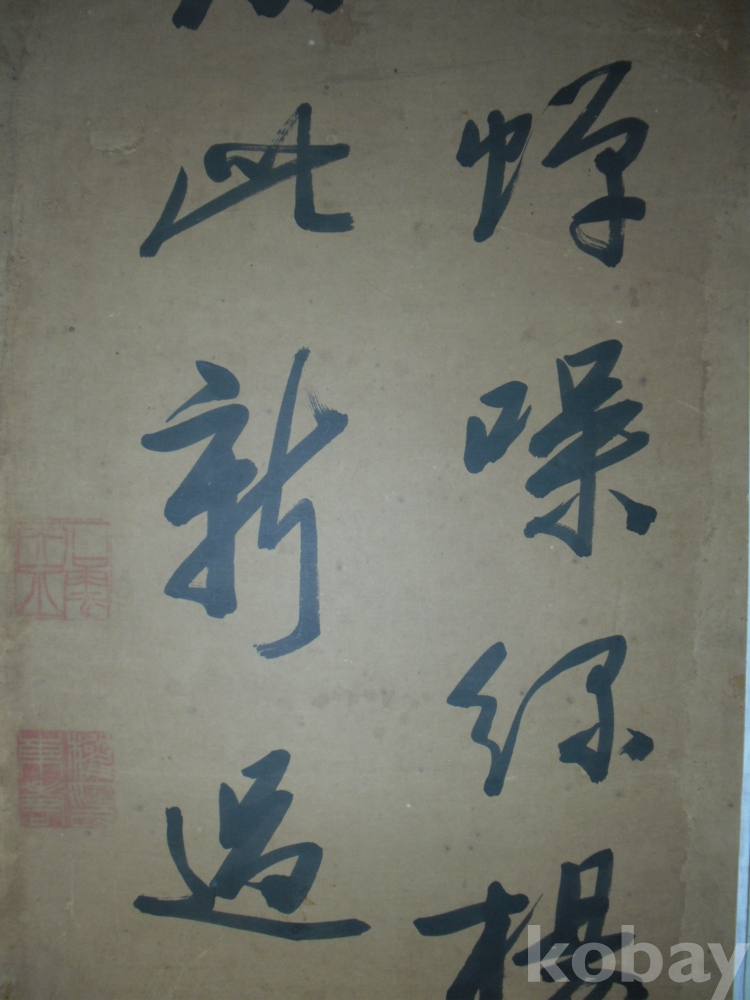 蟬噪綠楊
此新過
kobay